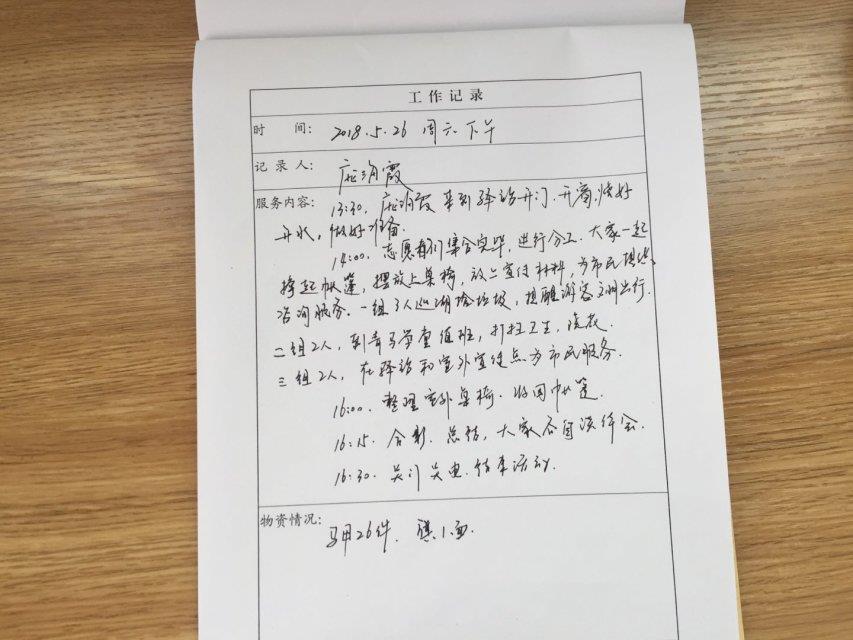 工作记录
时 间: 2018.5.26 周六下午
记录人: 庞海霞
服务内容: 13:30. 庞海霞来到驿站开门.开窗,烧好
开水,做好准备.
14:00. 志愿者们集合完毕,进行分工.大家一起
撑起帐篷,摆放上桌椅,放上宣传材料,为市民提供
咨询服务.一组3人巡湖捡垃圾,提醒游客文明出行.
二组2人,到青马学堂值班,打扫卫生,浇花.
三组2人,在驿站和室外宣传点为市民服务.
16:00. 整理室外桌椅.收回帐篷.
16:15. 合影.总结,大家各自谈体会.
16:30. 关门关电.结束活动.
物资情况: 马甲26件. 旗1面.